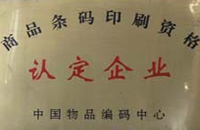 商品条码印刷资格
认定企业
中国物品编码中心